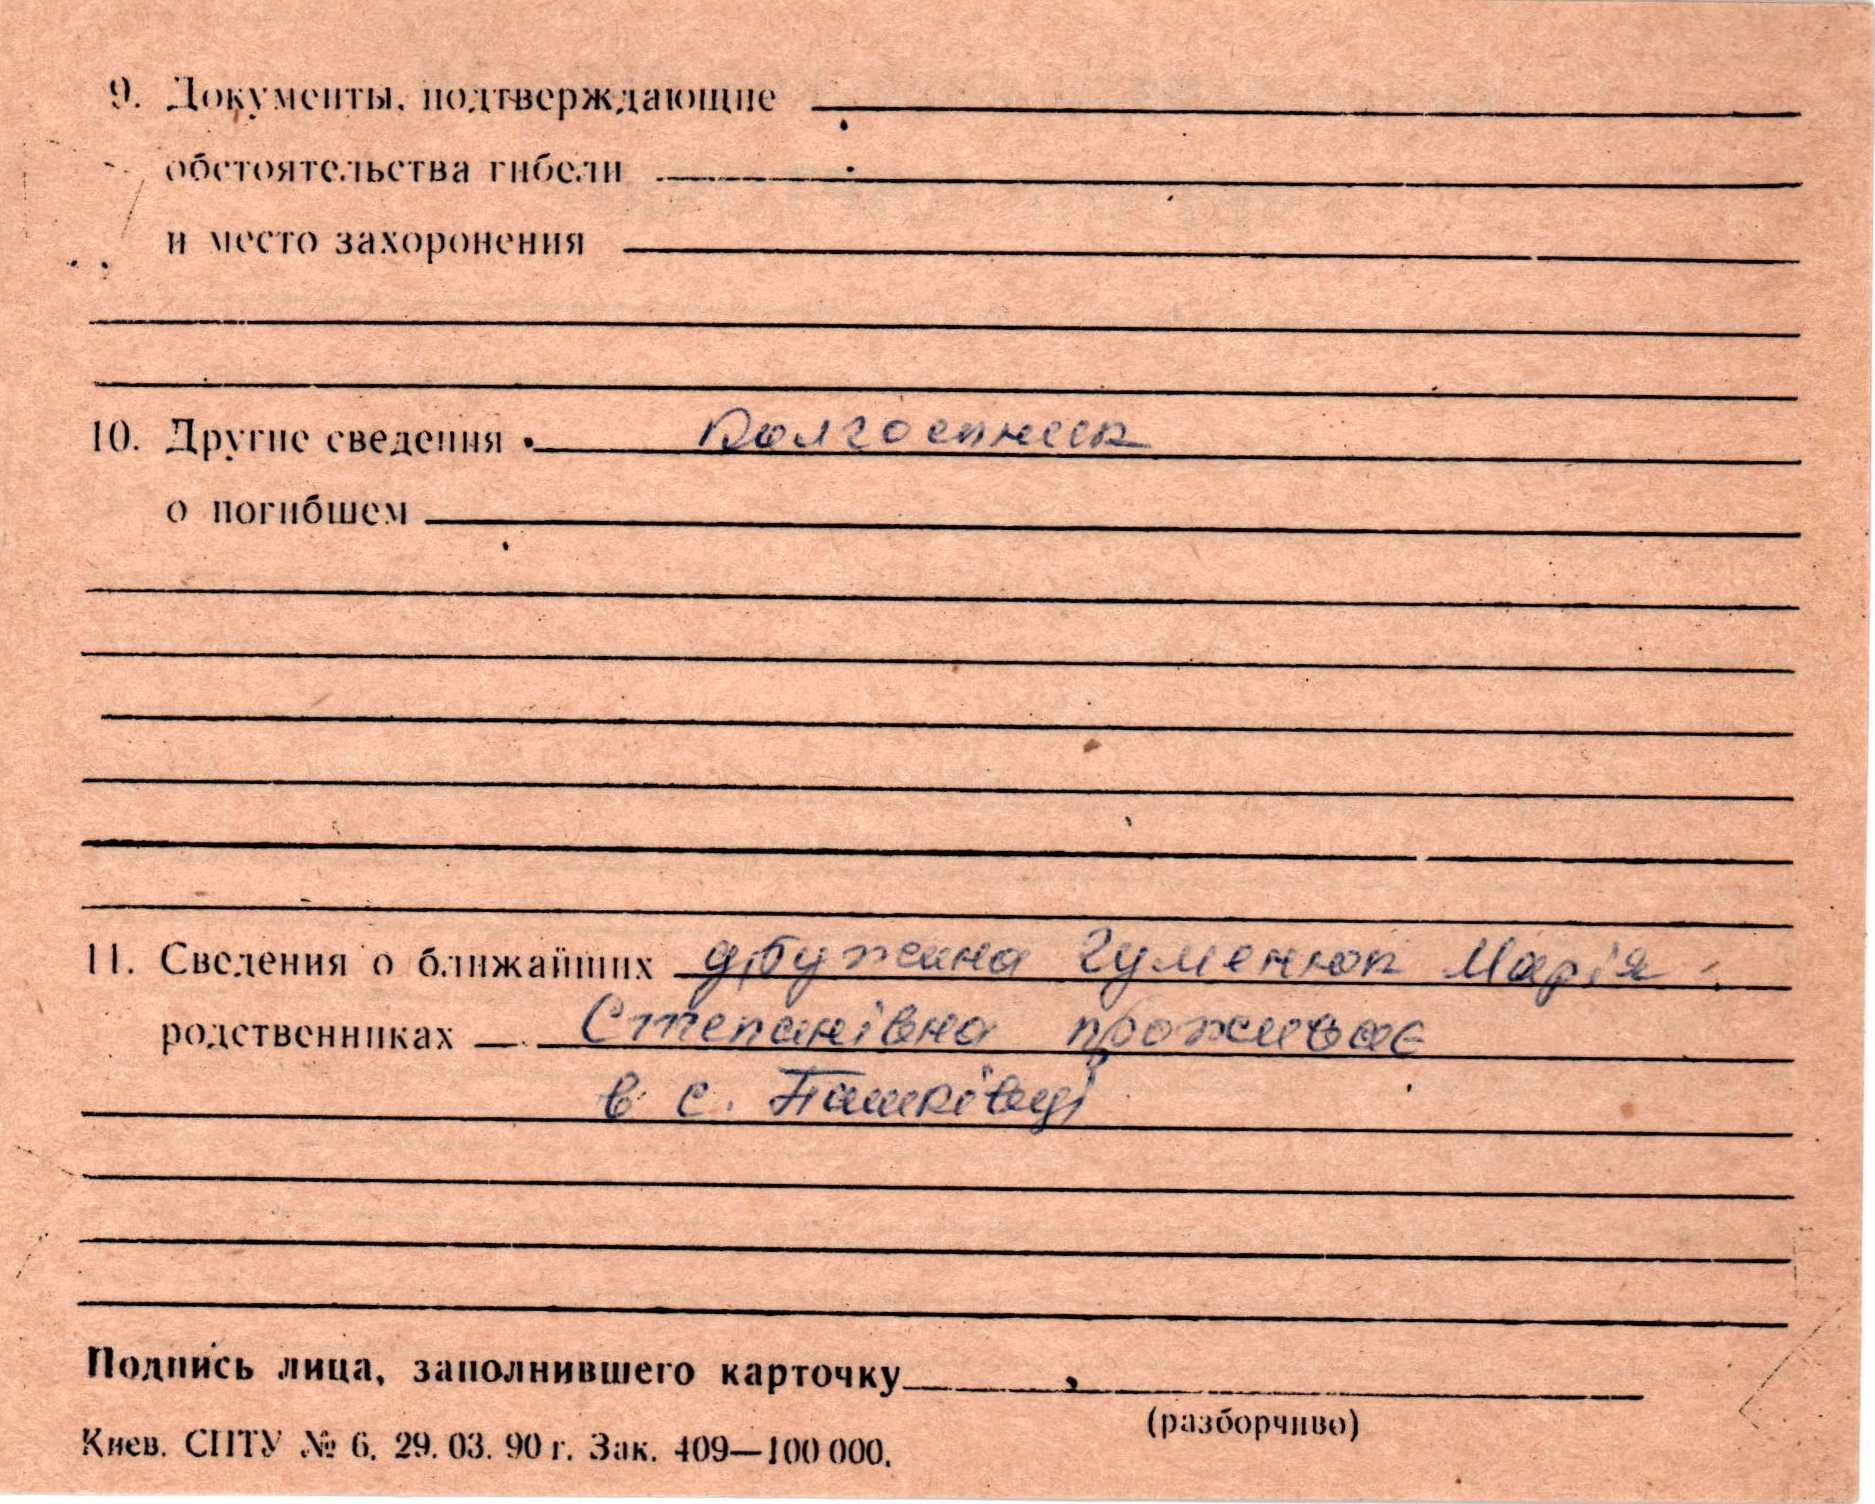 9. Документы, подтверждающие
обстоятельства гибели
и место захоронения
10. Другие сведения Колгоспник
о погибшем
11. Сведения о ближайших дружина Гуменюк Марія
родственниках Степанівна проживає
в с. Пашківці
Подпись лица, заполнившего карточку
(разборчиво)
Киев. СПТУ № 6. 29. 03. 90 г. Зак. 409—100 000.